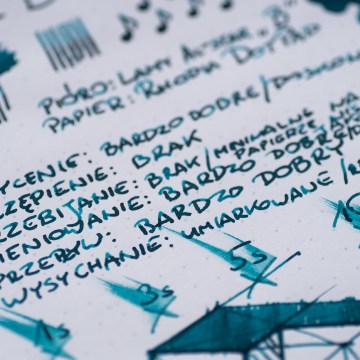 PIÓRO: LAMY ALSTAR "B"
PAPIER: RHODIA DOTPAD
YCENIE: BARDZO DOBRE /
ZĘPIENIE: BRAK
ZEBIJANIE: BRAK / MINIMALNE NA
PAPIERZE
IENIOWANIE: BARDZO DOBRE
PRZEPŁYW: BARDZO DOBRY
WYSYCHANIE: UMIARKOWANE /
1s 3s 5s